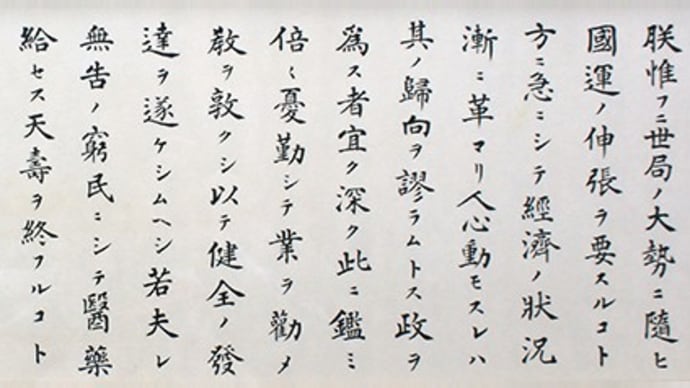 朕惟フニ世局ノ大勢ニ隨ヒ
國運ノ伸張ヲ要スルコト
方ニ急ニシテ經濟ノ狀況
漸ニ革マリ人心動モスレハ
其ノ歸向ヲ謬ラムトス政ヲ
爲ス者宜ク深ク此ニ鑑ミ
倍〻憂勤シテ業ヲ勸メ
敎ヲ敦クシ以テ健全ノ發
達ヲ遂ケシムヘシ若夫レ
無告ノ窮民ニシテ醫藥
給セス天壽ヲ終フルコト